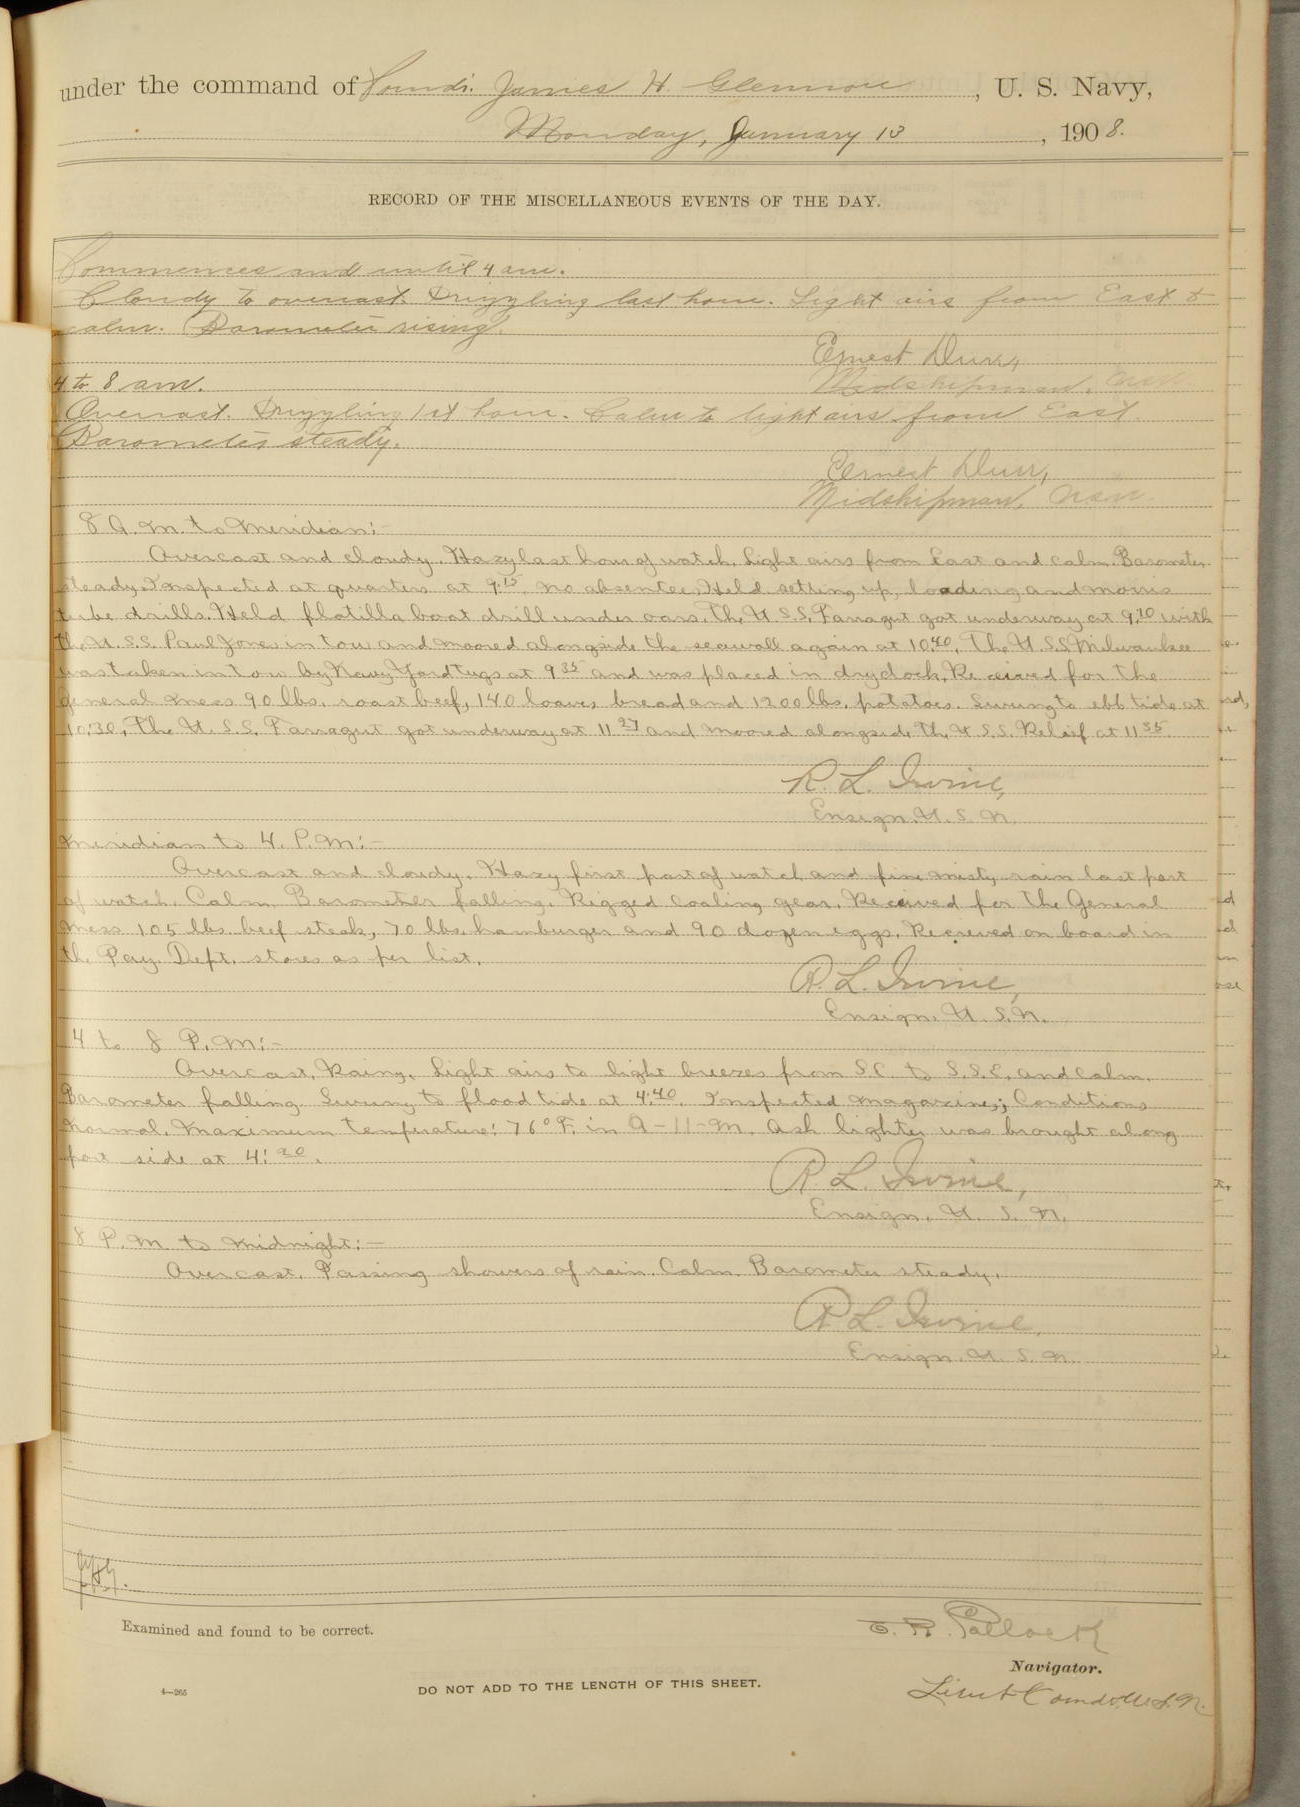 under the command of Comdr. James H. Glennon, U. S. Navy,
Monday, January 13, 1908.
RECORD OF THE MISCELLANEOUS EVENTS OF THE DAY.
Commences and until 4 am.
Cloudy to overcast. Drizzling last hour. Light airs from East &
calm. Barometer rising.
Ernest Durr,
Midshipman, USN.
4 to 8 am.
Overcast. Drizzling 1st hour. Calm to light airs from East.
Barometer steady.
Ernest Durr,
Midshipman, USN.
8 A.M. to Meridian:-
Overcast and cloudy. Hazy last hour of watch. Light airs from East and calm. Barometer
steady. Inspected at quarters at 9:15, no absentees. Held setting up, loading and morris
tube drills. Held flotilla boat drill under oars. The U.S.S. Farragut got underway at 9:10 with
the U.S.S. Paul Jones in tow and moored alongside the seawall again at 10:40. The U.S.S. Milwaukee
was taken in tow by Navy Yard tugs at 9 35 and was placed in drydock. Received for the
General mess 90 lbs. roast beef, 140 loaves bread and 1200 lbs. potatoes. Swung to ebb tide at
10:30. The U.S.S. Farragut got underway at 11 27 and moored alongside the U.S.S. Relief at 11 35.
R. L. Irvine,
Ensign, U. S. N.
Meridian to 4. P.M:-
Overcast and cloudy. Hazy first part of watch and fine misty rain last part
of watch. Calm. Barometer falling. Rigged coaling gear. Received for the General
mess 105 lbs. beef steak, 70 lbs. hamburger and 90 dozen eggs. Recieved on board in
the Pay. Dept. stores as per list.
R. L. Irvine,
Ensign, U. S. N.
4 to 8 P.M:-
Overcast. Rainy. Light airs to light breezes from S.E. to S.S.E. and calm.
Barometer falling. Swung to flood tide at 4:40. Inspected magazines; Conditions
normal. Maximum temperature: 76° F. in A-11-M. Ash lighter was brought along
port side at 4:20.
R. L. Irvine,
Ensign, U. S. N.
8 P.M. to Midnight:-
Overcast. Passing showers of rain. Calm. Barometer steady.
R. L. Irvine,
Ensign. U. S. N.
Examined and found to be correct.
E. R. Pollock
Navigator.
Lieut Comdr. U.S.N.
4—265
DO NOT ADD TO THE LENGTH OF THIS SHEET.